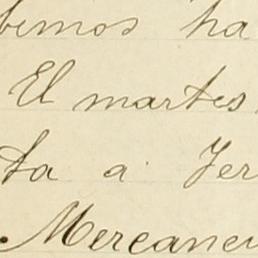 bemos ha
El martes
ta a Fer
Mercanci